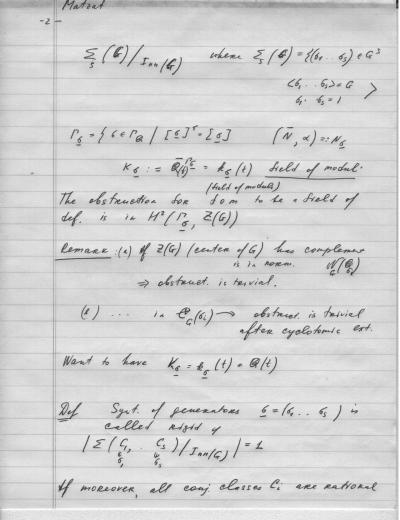 Matzat
-2-
Σ_s (G) / Inn(G) where Σ_s (G) = {(σ_1 .. σ_s) ∈ G^s
⟨σ_1 .. σ_s⟩ = G
σ_1 . σ_s = 1 }
Γ_σ = { τ ∈ Γ_Q / [σ]^τ = [σ] (N̄, α) =: N_σ
K_σ := Q̄(t)^Γ_σ = k_σ(t) field of moduli
(field of moduli)
The obstruction for f o m to be a field of
def. is in H²(Γ_σ, Z(G))
Remark: (a) If Z(G) (center of G) has complement
is in norm. N_G(
⇒ obstruct. is trivial.
(b) ... in C_G(σ_i) → obstruct. is trivial
after cyclotomic ext.
Want to have K_σ = k_σ(t) = Q(t)
Def Syst. of generators σ = (σ_1 .. σ_s) is
called rigid if
| Σ(C_1 .. C_s) / Inn(G) | = 1
σ_1 σ_s
If moreover, all conj. classes C_i are rational